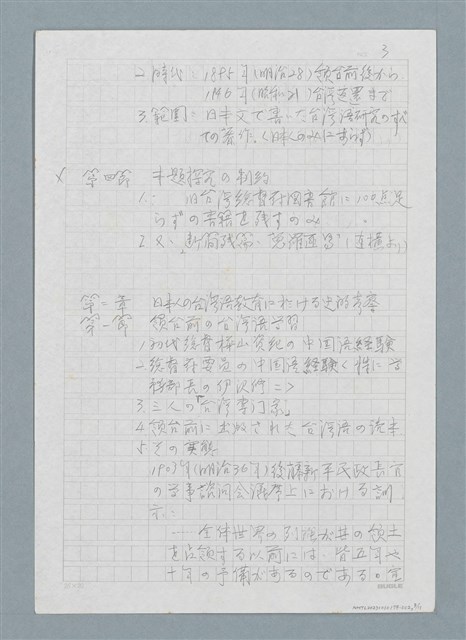 3
2 時代:1895年(明治28)領台前後から
1946年(昭和21)台湾送還まで
3. 範囲:日本文で書いた台湾語研究のすべ
ての著作。(日本人のみにあらず)
第四節 本題探究の制約
1. 旧台湾総督府図書館に100点足
らずの書籍を残すのみ。
2 又、断簡残篇、
第二章 日本人の台湾語教育における史的考察
第一節 領台前の台湾語学習
1 初代総督樺山資紀の中国語経験
2 総督府要員の中国語経験〈特に学
務部長の伊沢修二〉
3. 三人の「台湾専門家」
4 領台前に出版された台湾語の読本
5 その実態
1903年(明治36年)後藤新平民政長官
の学事諮問会満席上における訓
示:
……全体世界の列強が其の領土
を占領する以前には、皆五年や
十年の予備があるのである。宜